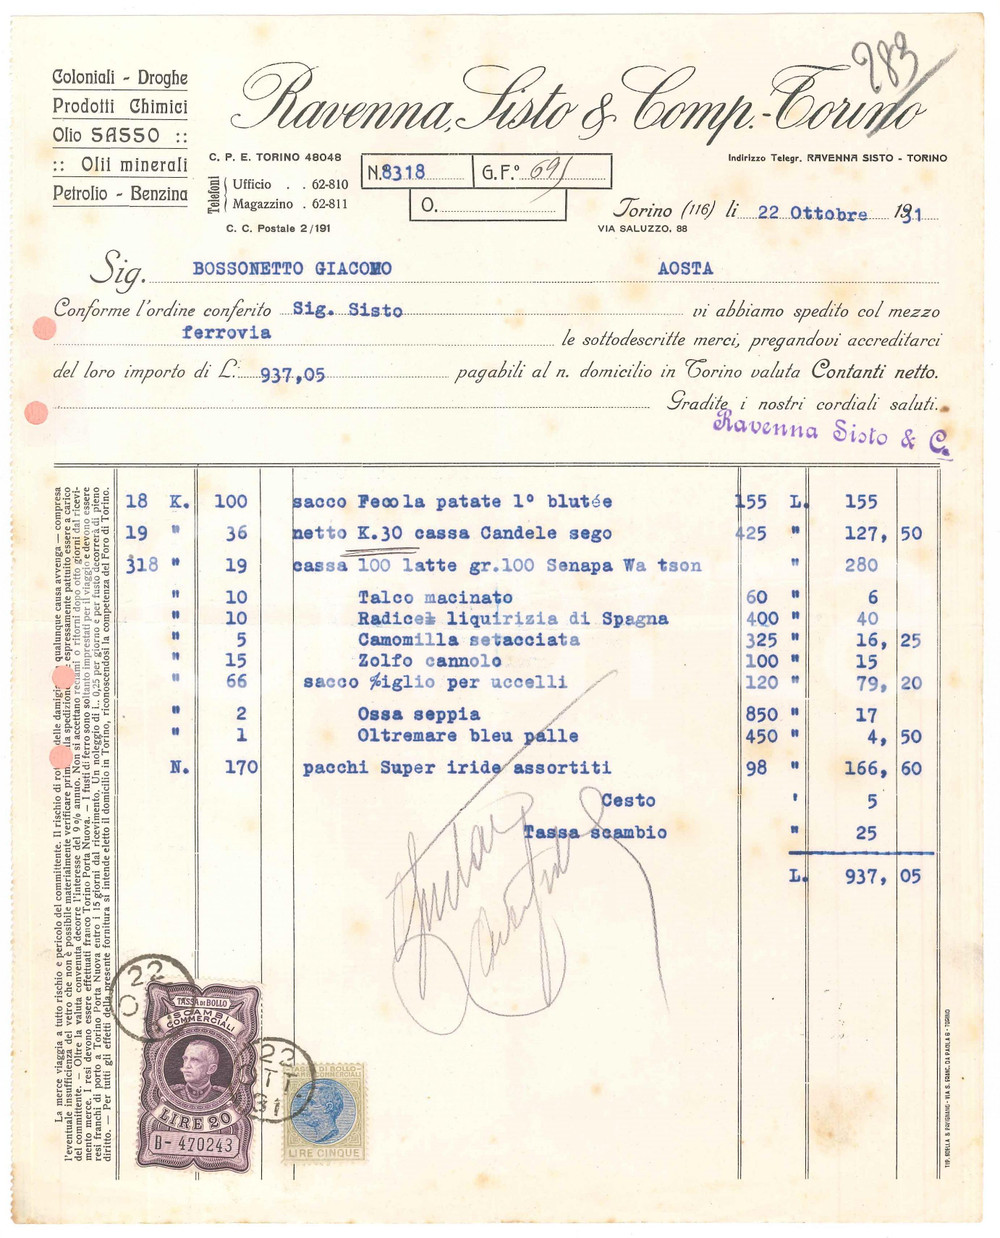 283
Coloniali - Droghe
Prodotti Chimici
Olio SASSO ::
:: Olii minerali
Petrolio - Benzina
Ravenna, Sisto & Comp.-Torino
C. P. E. TORINO 48048
Telefoni
Ufficio . . 62-810
Magazzino . 62-811
C. C. Postale 2/191
N. 8318
G. F.º 691
O.
Indirizzo Telegr. RAVENNA SISTO - TORINO
Torino (116) li 22 Ottobre 1931
VIA SALUZZO, 88
Sig. BOSSONETTO GIACOMO AOSTA
Conforme l'ordine conferito Sig. Sisto vi abbiamo spedito col mezzo
ferrovia le sottodescritte merci, pregandovi accreditarci
del loro importo di L. 937,05 pagabili al n. domicilio in Torino valuta Contanti netto.
Gradite i nostri cordiali saluti.
Ravenna Sisto & C.
18 K. 100 sacco Fecola patate 1° blutée 155 L. 155
19 " 36 netto K.30 cassa Candele sego 425 " 127, 50
318 " 19 cassa 100 latte gr.100 Senapa Wa tson " 280
" 10 Talco macinato 60 " 6
" 10 Radice liquirizia di Spagna 400 " 40
" 5 Camomilla setacciata 325 " 16, 25
" 15 Zolfo cannolo 100 " 15
" 66 sacco Miglio per uccelli 120 " 79, 20
" 2 Ossa seppia 850 " 17
" 1 Oltremare bleu palle 450 " 4, 50
N. 170 pacchi Super iride assortiti 98 " 166, 60
Cesto ' 5
Tassa scambio " 25
L. 937, 05
La merce viaggia a tutto rischio e pericolo del committente. Il rischio di delle damig qualunque causa avvenga — compresa
l'eventuale insufficienza del vetro che non è possibile materialmente verificare prim la spedizion espressamente pattuito essere a carico
del committente. — Oltre la valuta convenuta decorre l'interesse del 9 % annuo. Non si accettano reclami o ritorni dopo otto giorni dal ricevi-
mento merce. I resi devono essere effettuati franco Torino Porta Nuova. — I fusti di ferro sono soltanto imprestati per il viaggio e devono essere
resi franchi di porto a Torino Porta Nuova entro i 15 giorni dal ricevimento. Un noleggio di L. 0,25 per giorno e per fusto decorrerà di pieno
diritto. — Per tutti gli effetti della presente fornitura si intende eletto il domicilio in Torino, riconoscendosi la competenza del Foro di Torino.
22
TASSA DI BOLLO
SCAMBI
COMMERCIALI
LIRE 20
B- 470243
22
OTT
31
TASSA DI BOLLO
LIRE CINQUE